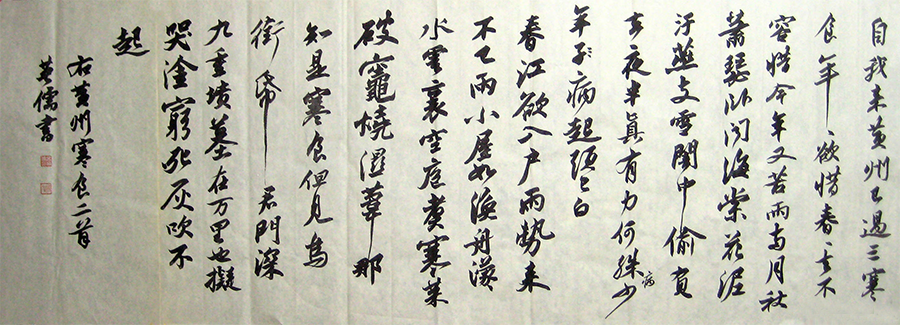 自我来黄州已過三寒
食年〻欲惜春〻去不
容惜今年又苦雨兩月秋
蕭瑟卧聞海棠花泥
汙燕支雪闇中偷負
去夜半真有力何殊少
病
年子病起頭已白
春江欲入户雨勢来
不已雨小屋如漁舟濛
水雲裏空庖煮寒菜
破竈燒濕葦那
知是寒食但見烏
銜帋君門深
九重墳墓在万里也擬
哭塗窮死灰吹不
起
右黄州寒食二首
儒書